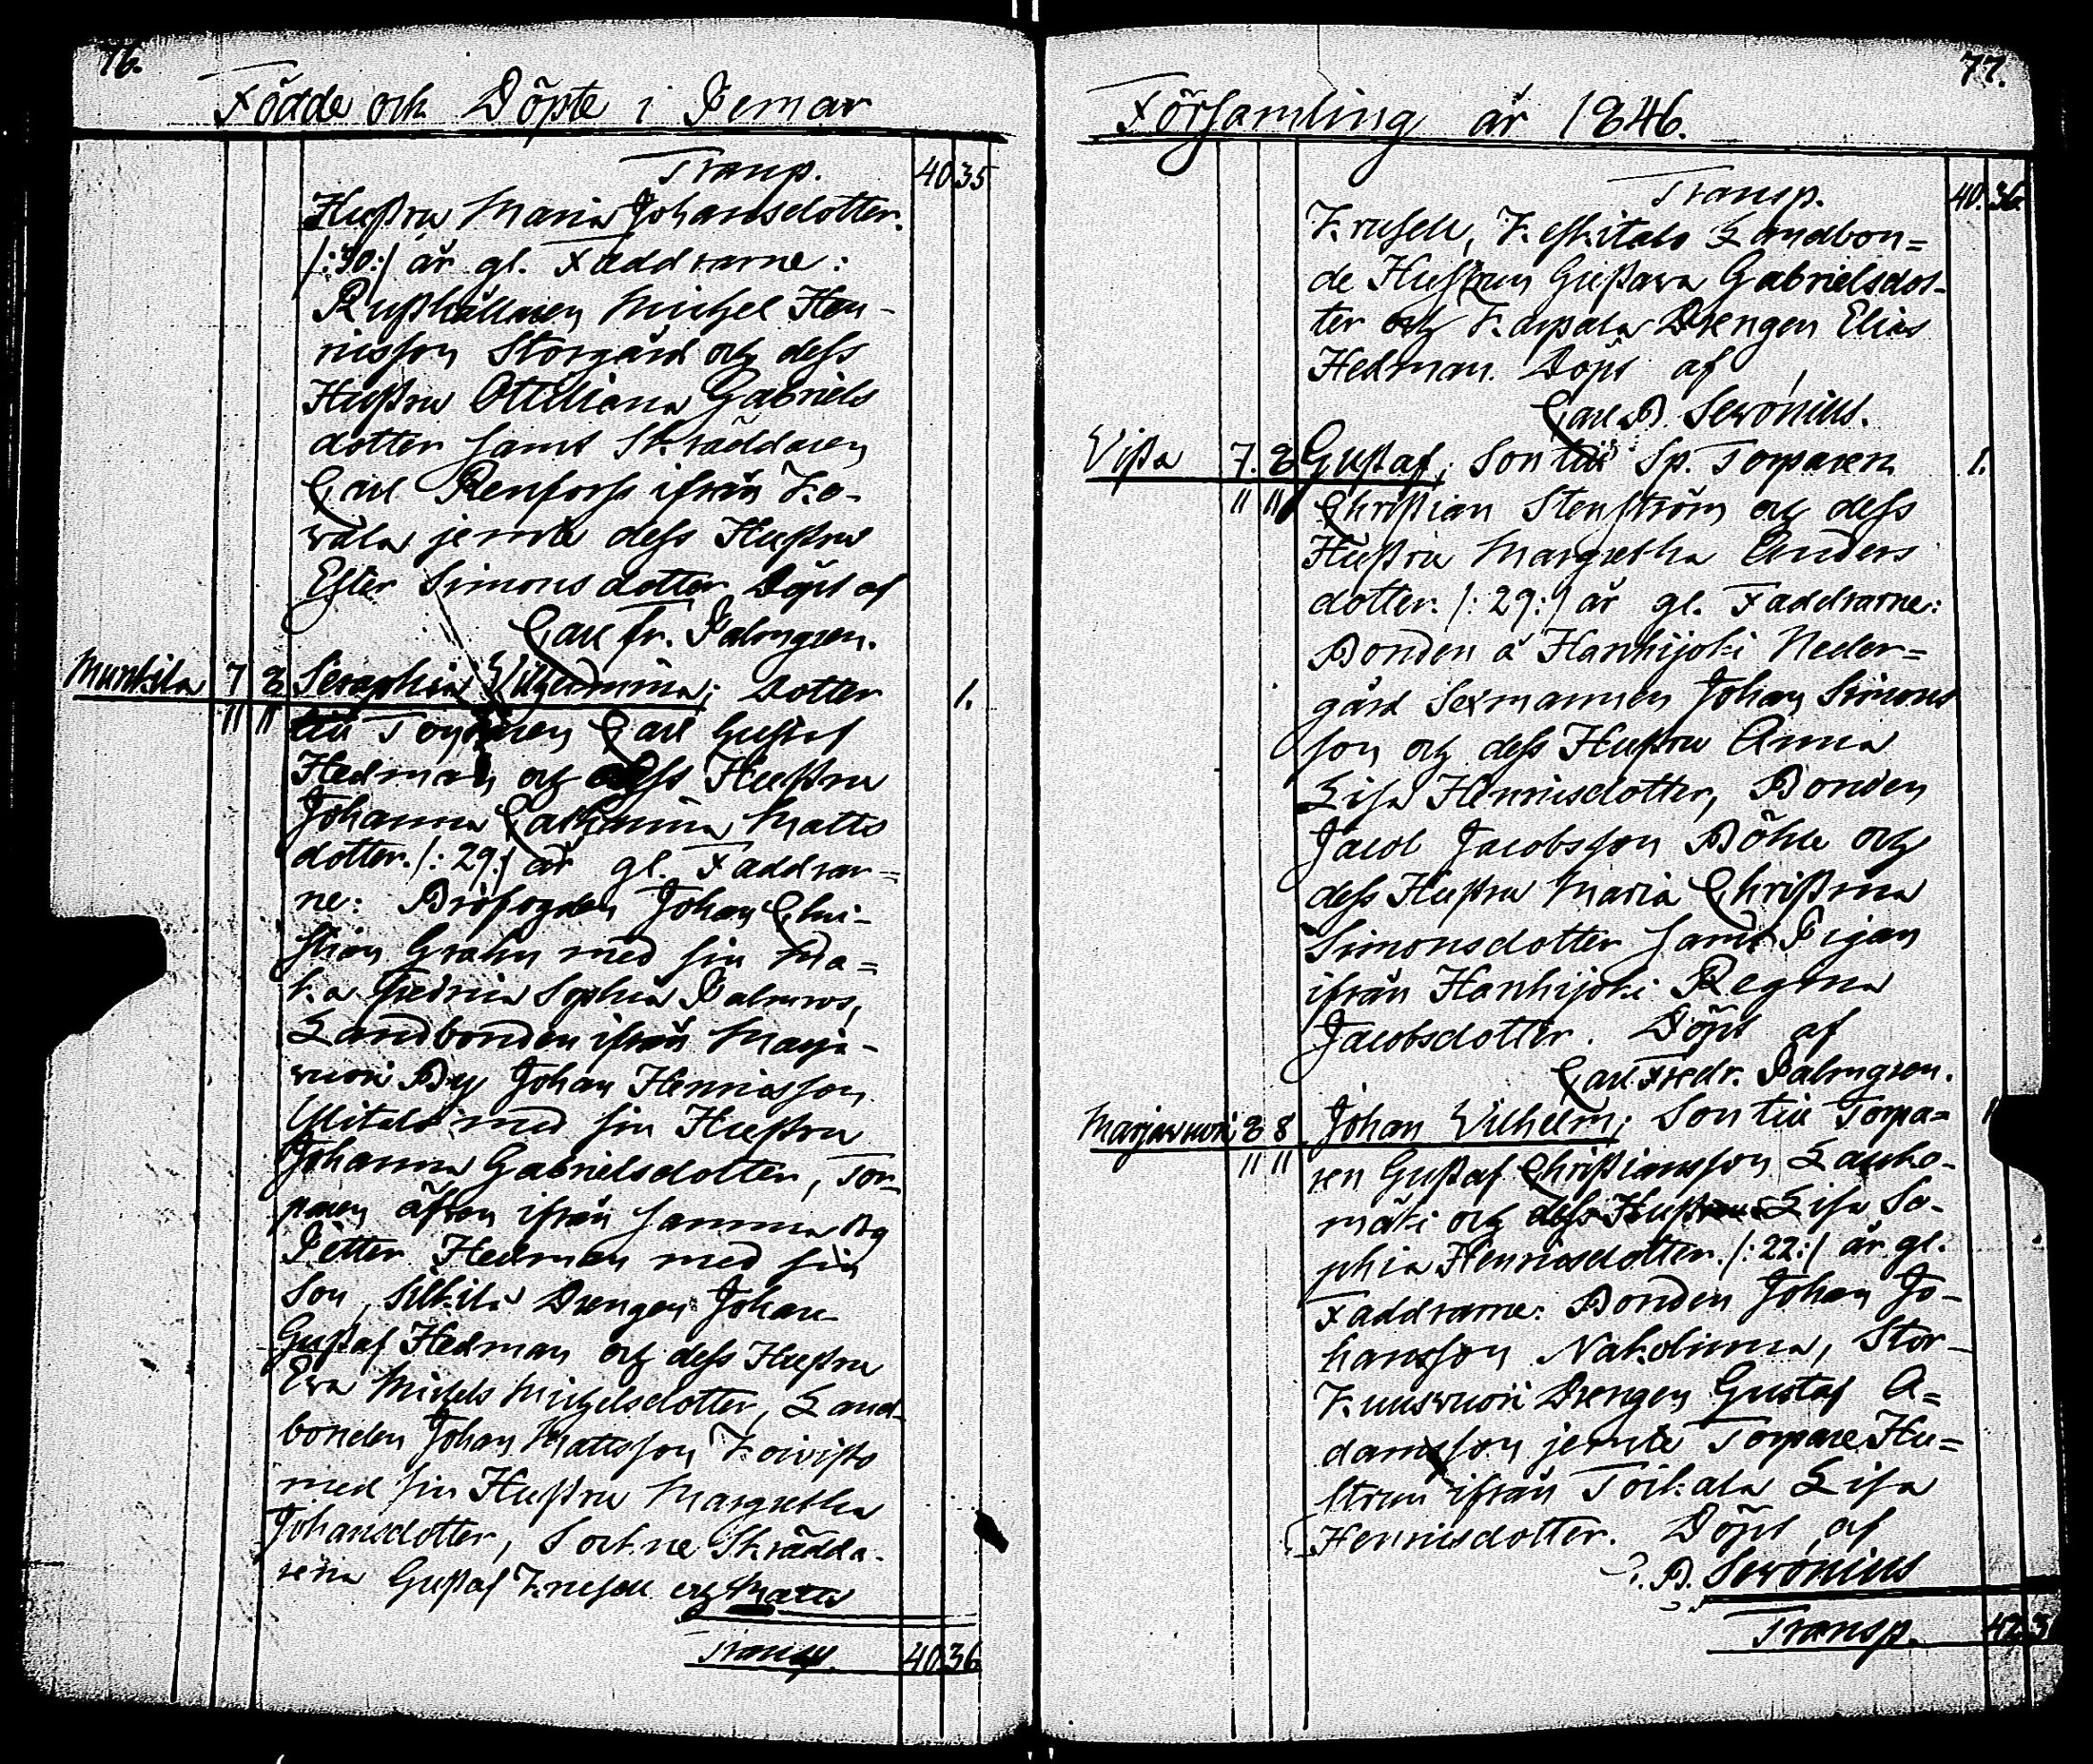 76.
Födde och Döpte i Pemar
Transp. 40. 35
Hustru Maria Johansdotter.
/:30:/ år gl. Faddrarne:
Rusthållaren Michel Hen-
ricsson Storgård och dess
Hustru Ottiliana Gabriels
dotter samt Skräddaren
Carl Renfors ifrån Ko-
vala jemte dess Hustru
Ester Simonsdotter Döpt af
Carl Fr. Palmgren.
Munkila 7 8 Seraphia Vilhelmina; Dotter 1.
" " till Torparen Carl Gustaf
Hedman och dess Hustru
Johanna Catharina Matts
dotter. /:29:/ år gl. Faddrar=
ne: Brofogden Johan Chri-
stian Grahn med sin Ma=
ka Fredrica Sophia Palmros,
Landbonden ifrån Marja-
vuori By Johan Henricsson
Ylitalo med sin Hustru
Johanna Gabrielsdotter, Tor-
paren äfven ifrån samma By
Petter Hedman med sin
Son, Drengen Johan
Gustaf Hedman och dess Hustru
Eva Michels Michelsdotter, Land-
bonden Johan Mattsson Koivisto
med sin Hustru Margretha
Johansdotter, Sockne Skrädda-
rena Gustaf Krusell och Matts
Transp. 40. 36
77.
Församling år 1846.
Transp. 40. 36.
Krusell, Keskitalo Landbon=
de Hustrun Gustava Gabrielsdot-
ter och Karpala Drengen Elias
Hedman. Döpt af
Carl B. Serónius.
Vista 7. 8 Gustaf; Son till Sp. Torparen 1.
" " Christian Stenström och dess
Hustru Margretha Anders
dotter. /:29:/ år gl. Faddrarne:
Bonden å Hanhijoki Neder=
gård Sexmannen Johan Simons
son och dess Hustru Anna
Lisa Henricsdotter, Bonden
Jacob Jacobsson Böhle och
dess Hustru Maria Christina
Simonsdotter samt Pigan
ifrån Hanhijoki Regina
Jacobsdotter. Döpt af
Carl Fredr. Palmgren.
Marjavuori 8 8 Johan Vilhelm; Son till Torpa= 1
" " ren Gustaf Christiansson Lauko-
mäki och dess Hustru Lisa So-
phia Henricsdotter. /:22:/ år gl.
Faddrarne: Bonden Johan Jo-
hansson Nakolinna, Stor-
Kuusvuori Drengen Gustaf A=
damsson jemte Torpare Hu=
strun ifrån Toikala Lisa
Henricsdotter. Döpt af
C. B. Serónius
Transp. 42. 3